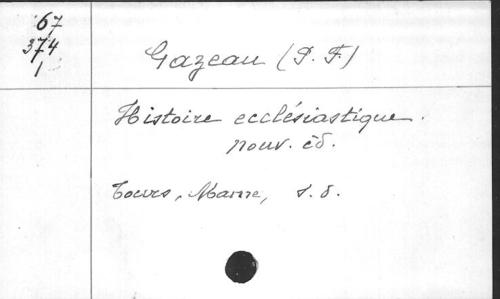 67
374
1
Gazeau (P. F.)
Histoire ecclésiastique.
nouv. éd.
Tours, Mame, s. d.